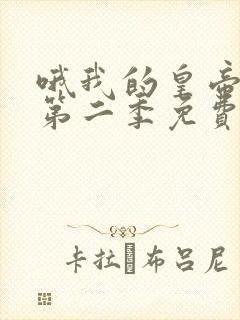 哦我的皇帝
第二季免费
卡拉·布吕尼